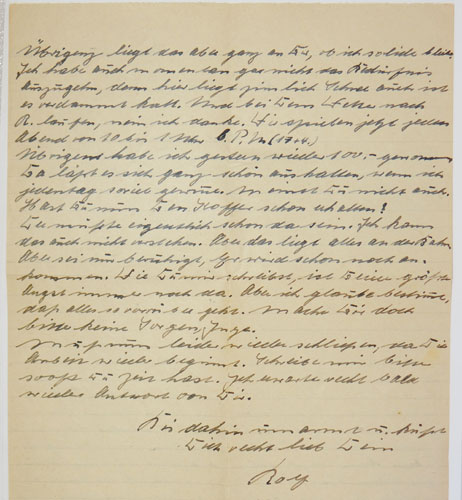 Übrigens liegt das aber ganz an Dir, ob ich solide bleibe.
Ich habe auch momentan gar nicht das Bedürfnis
auszugehn, denn hier liegt zimlich Schnee auch ist
es verdammt kalt. Und bei dem Wetter nach
R. laufen, nein ich danke. Wir spielen jetzt jeden
Abend von 10 bis 1 Uhr
Übrigens habe ich gestern wieder 100,- gewonnen
Da läßt es sich ganz schön aushalten, wenn ich
jeden Tag soviel gewinne. Meinst Du nicht auch.
Hast Du nun Den Koffer schon erhalten?
Er müßte eigentlich schon da sein. Ich kann
das auch nicht verstehen. Aber das liegt alles an der Bahn.
Aber sei nur beruhigt, Er wird schon noch an-
kommen. Wie Du mir schreibst, ist Deine größte
Angst immer noch da. Aber ich glaube bestimmt,
daß alles so vorrüber geht. Mache Dir doch
bitte keine Sorgen,
Muß nun leider wieder schließen, da Die
Arbeit wieder beginnt. Schreibe mir bitte
sooft Du Zeit hast. Ich erwarte recht bald
wieder Antwort von Dir.
Bis dahin umarmt u. küßt
Dich recht lieb Dein
Rolf